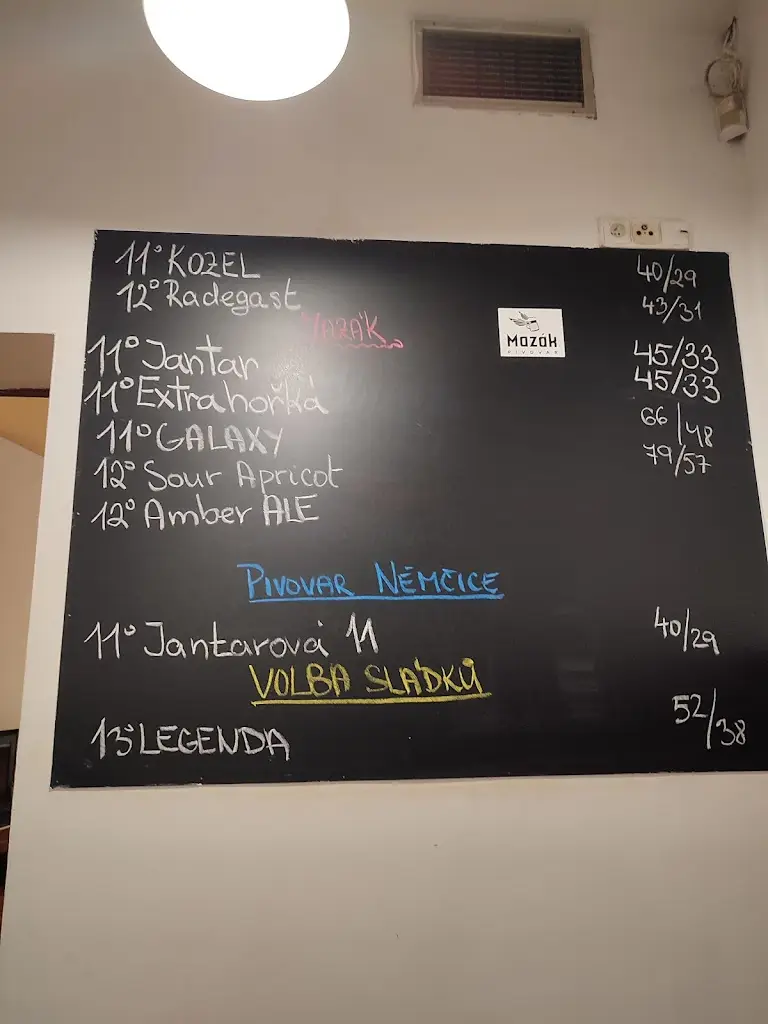 11° KOZEL 40/29
12° Radegast 43/31
MAZÁK
Mazák
PIVOVAR
11° Jantar 45/33
11° Extra hořká 45/33
11° GALAXY 66/48
12° Sour Apricot 79/57
12° Amber ALE
PIVOVAR NĚMČICE
11° Jantarová 11 40/29
VOLBA SLÁDKŮ
13° LEGENDA 52/38